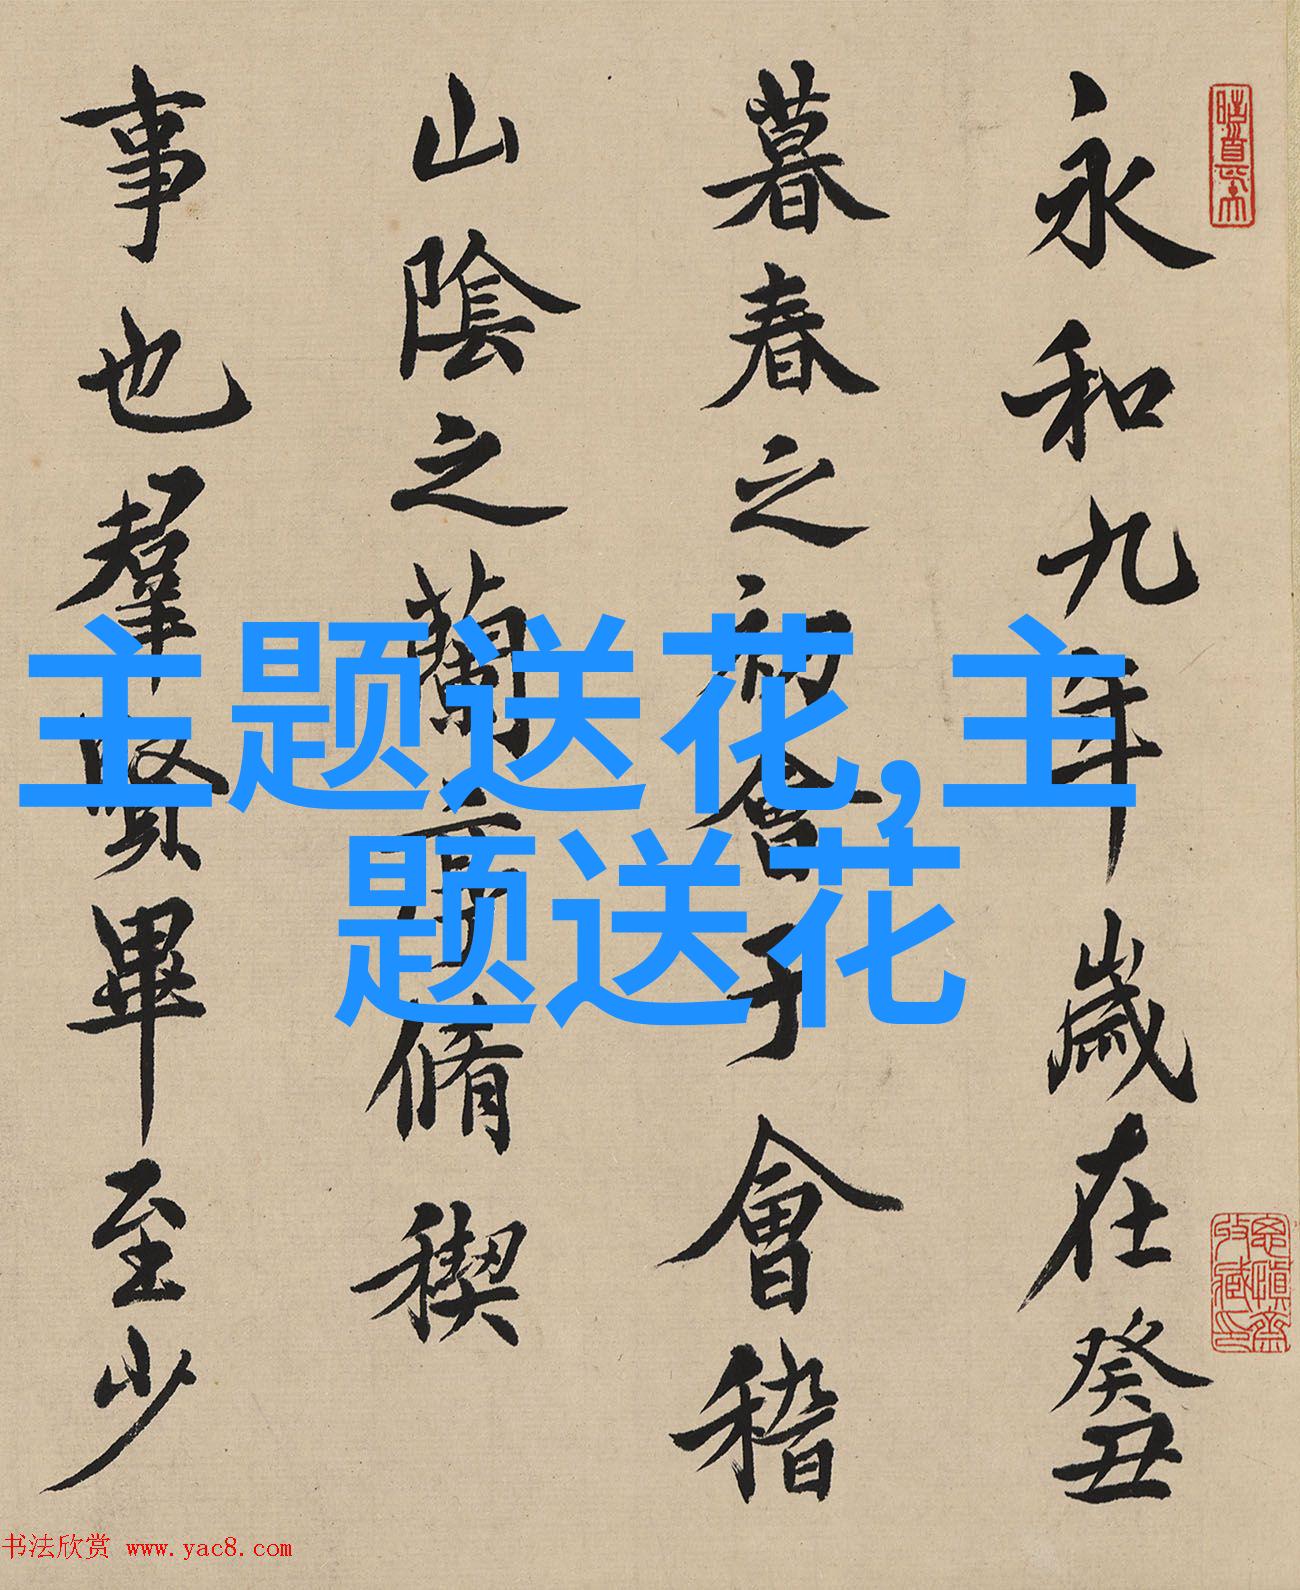 永和九年歲在癸丑
暮春之初會于會稽
山陰之蘭亭脩稧
事也羣賢畢至少
主题送花,主
题送花
书法欣赏 www.yac8.com